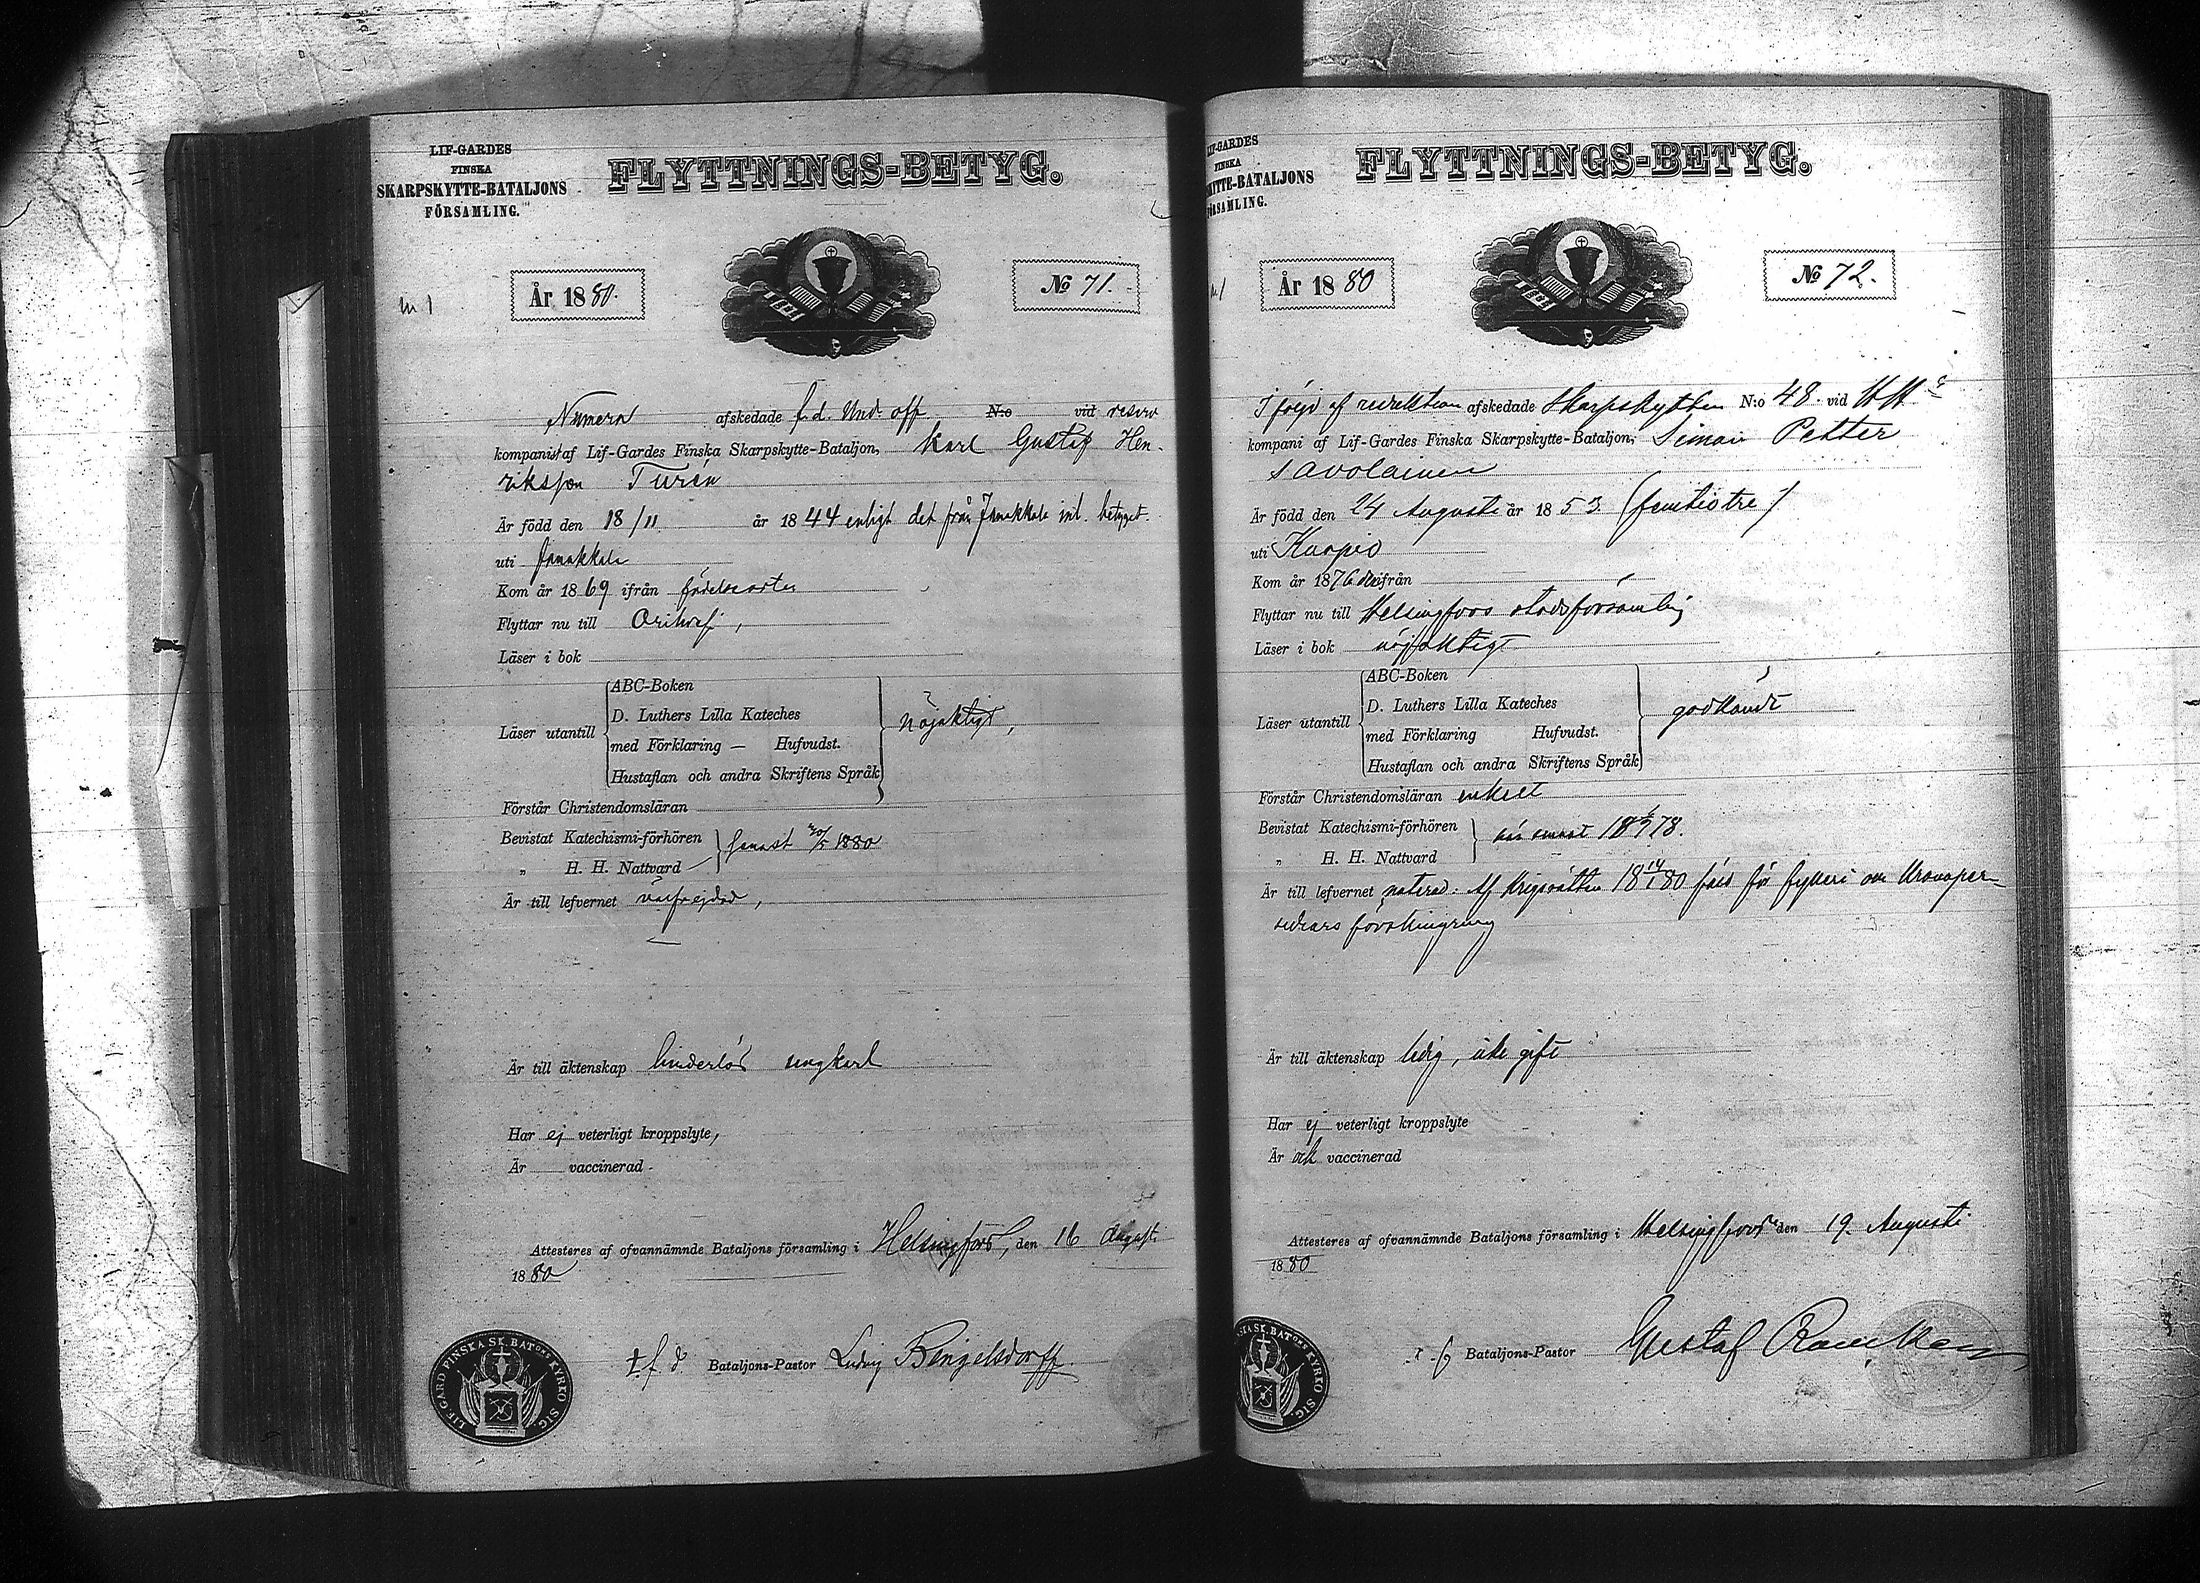 LIF-GARDES
FINSKA
SKARPSKYTTE-BATALJONS
FÖRSAMLING.
FLYTTNINGS-BETYG.
År 1880.
No 71.
Numera afskedade f.d. Und. off N:o vid reserv
kompani af Lif-Gardes Finska Skarpskytte-Bataljon, Karl Gustaf Hen-
riksson Turén
Är född den 18/11 år 1844 enligt det från Janakkala inl. betyget.
uti Janakkala
Kom år 1869 ifrån födelseorten
Flyttar nu till
Läser i bok
Läser utantill
ABC-Boken
D. Luthers Lilla Kateches
med Förklaring — Hufvudst.
Hustaflan och andra Skriftens Språk
nöjaktigt,
Förstår Christendomsläran
Bevistat Katechismi-förhören
„ H. H. Nattvard
senast 20/5 1880
Är till lefvernet välfrejdad,
Är till äktenskap hinderlös ungkarl
Har ej veterligt kroppslyte,
Är vaccinerad
Attesteres af ofvannämnde Bataljons församling i Helsingfors, den 16 August
1880
t. f. d Bataljons-Pastor Ludvig Bengelsdorff
LIF. GARD FINSKA SK. BATONS KYRKO SIG.
LIF-GARDES
FINSKA
SKYTTE-BATALJONS
FÖRSAMLING.
FLYTTNINGS-BETYG.
År 1880
No 72.
I följd af reduktion afskedade Skarpskytten N:o 48. vid
kompani af Lif-Gardes Finska Skarpskytte-Bataljon, Simon Petter
Savolainen
Är född den 24 Augusti år 1853 (femtiotre)
uti Kuopio
Kom år 1876 ifrån
Flyttar nu till Helsingfors stadsförsamling
Läser i bok nöjaktigt
Läser utantill
ABC-Boken
D. Luthers Lilla Kateches
med Förklaring Hufvudst.
Hustaflan och andra Skriftens Språk
godkändt
Förstår Christendomsläran enkelt
Bevistat Katechismi-förhören
„ H. H. Nattvard
här senast 1878.
Är till lefvernet noterad: Af Krigsrätten 1880 fäld för fylleri och Kronoper-
sedlars förskingring
Är till äktenskap ledig, icke gift
Har ej veterligt kroppslyte
Är och vaccinerad
Attesteres af ofvannämnde Bataljons församling i Helsingfors den 19. Augusti
1880
Bataljons-Pastor Gustaf
SKA SK. BATONS KYRKO SIG.